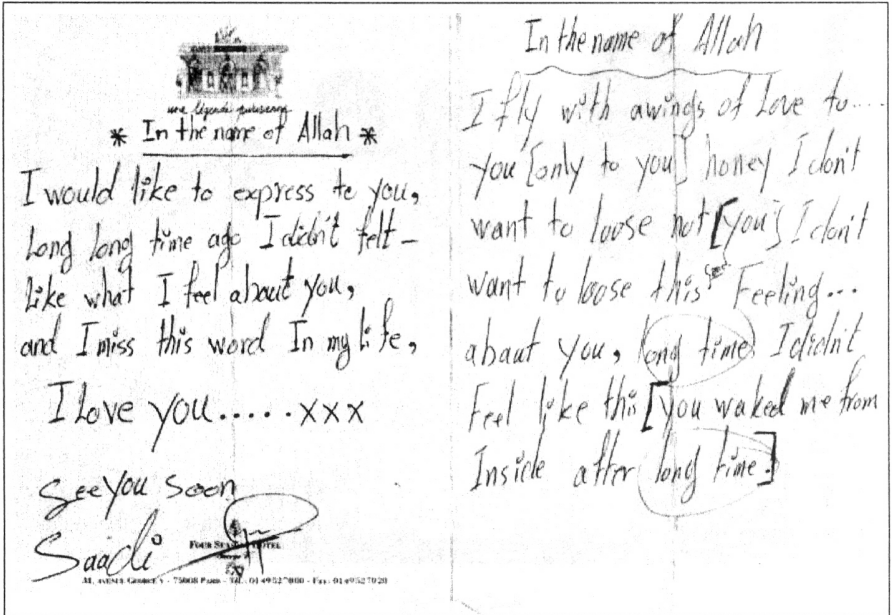 une légende
* In the name of Allah *
I would like to express to you,
Long long time ago I didn't felt -
Like what I feel about you,
and I miss this word In my life,
I Love you.....xxx
See you soon
Saadi
FOUR SEASONS HOTEL
AVENUE GEORGE V - 75008 PARIS - TEL.: 01 49527000 - FAX: 01 49527020
In the name of Allah
I fly with awings of Love to....
you [only to you] honey I don't
want to loose not [you] I don't
want to loose this Feeling...
about you, long time I didn't
Feel like this [you waked me from
Inside after long time.]